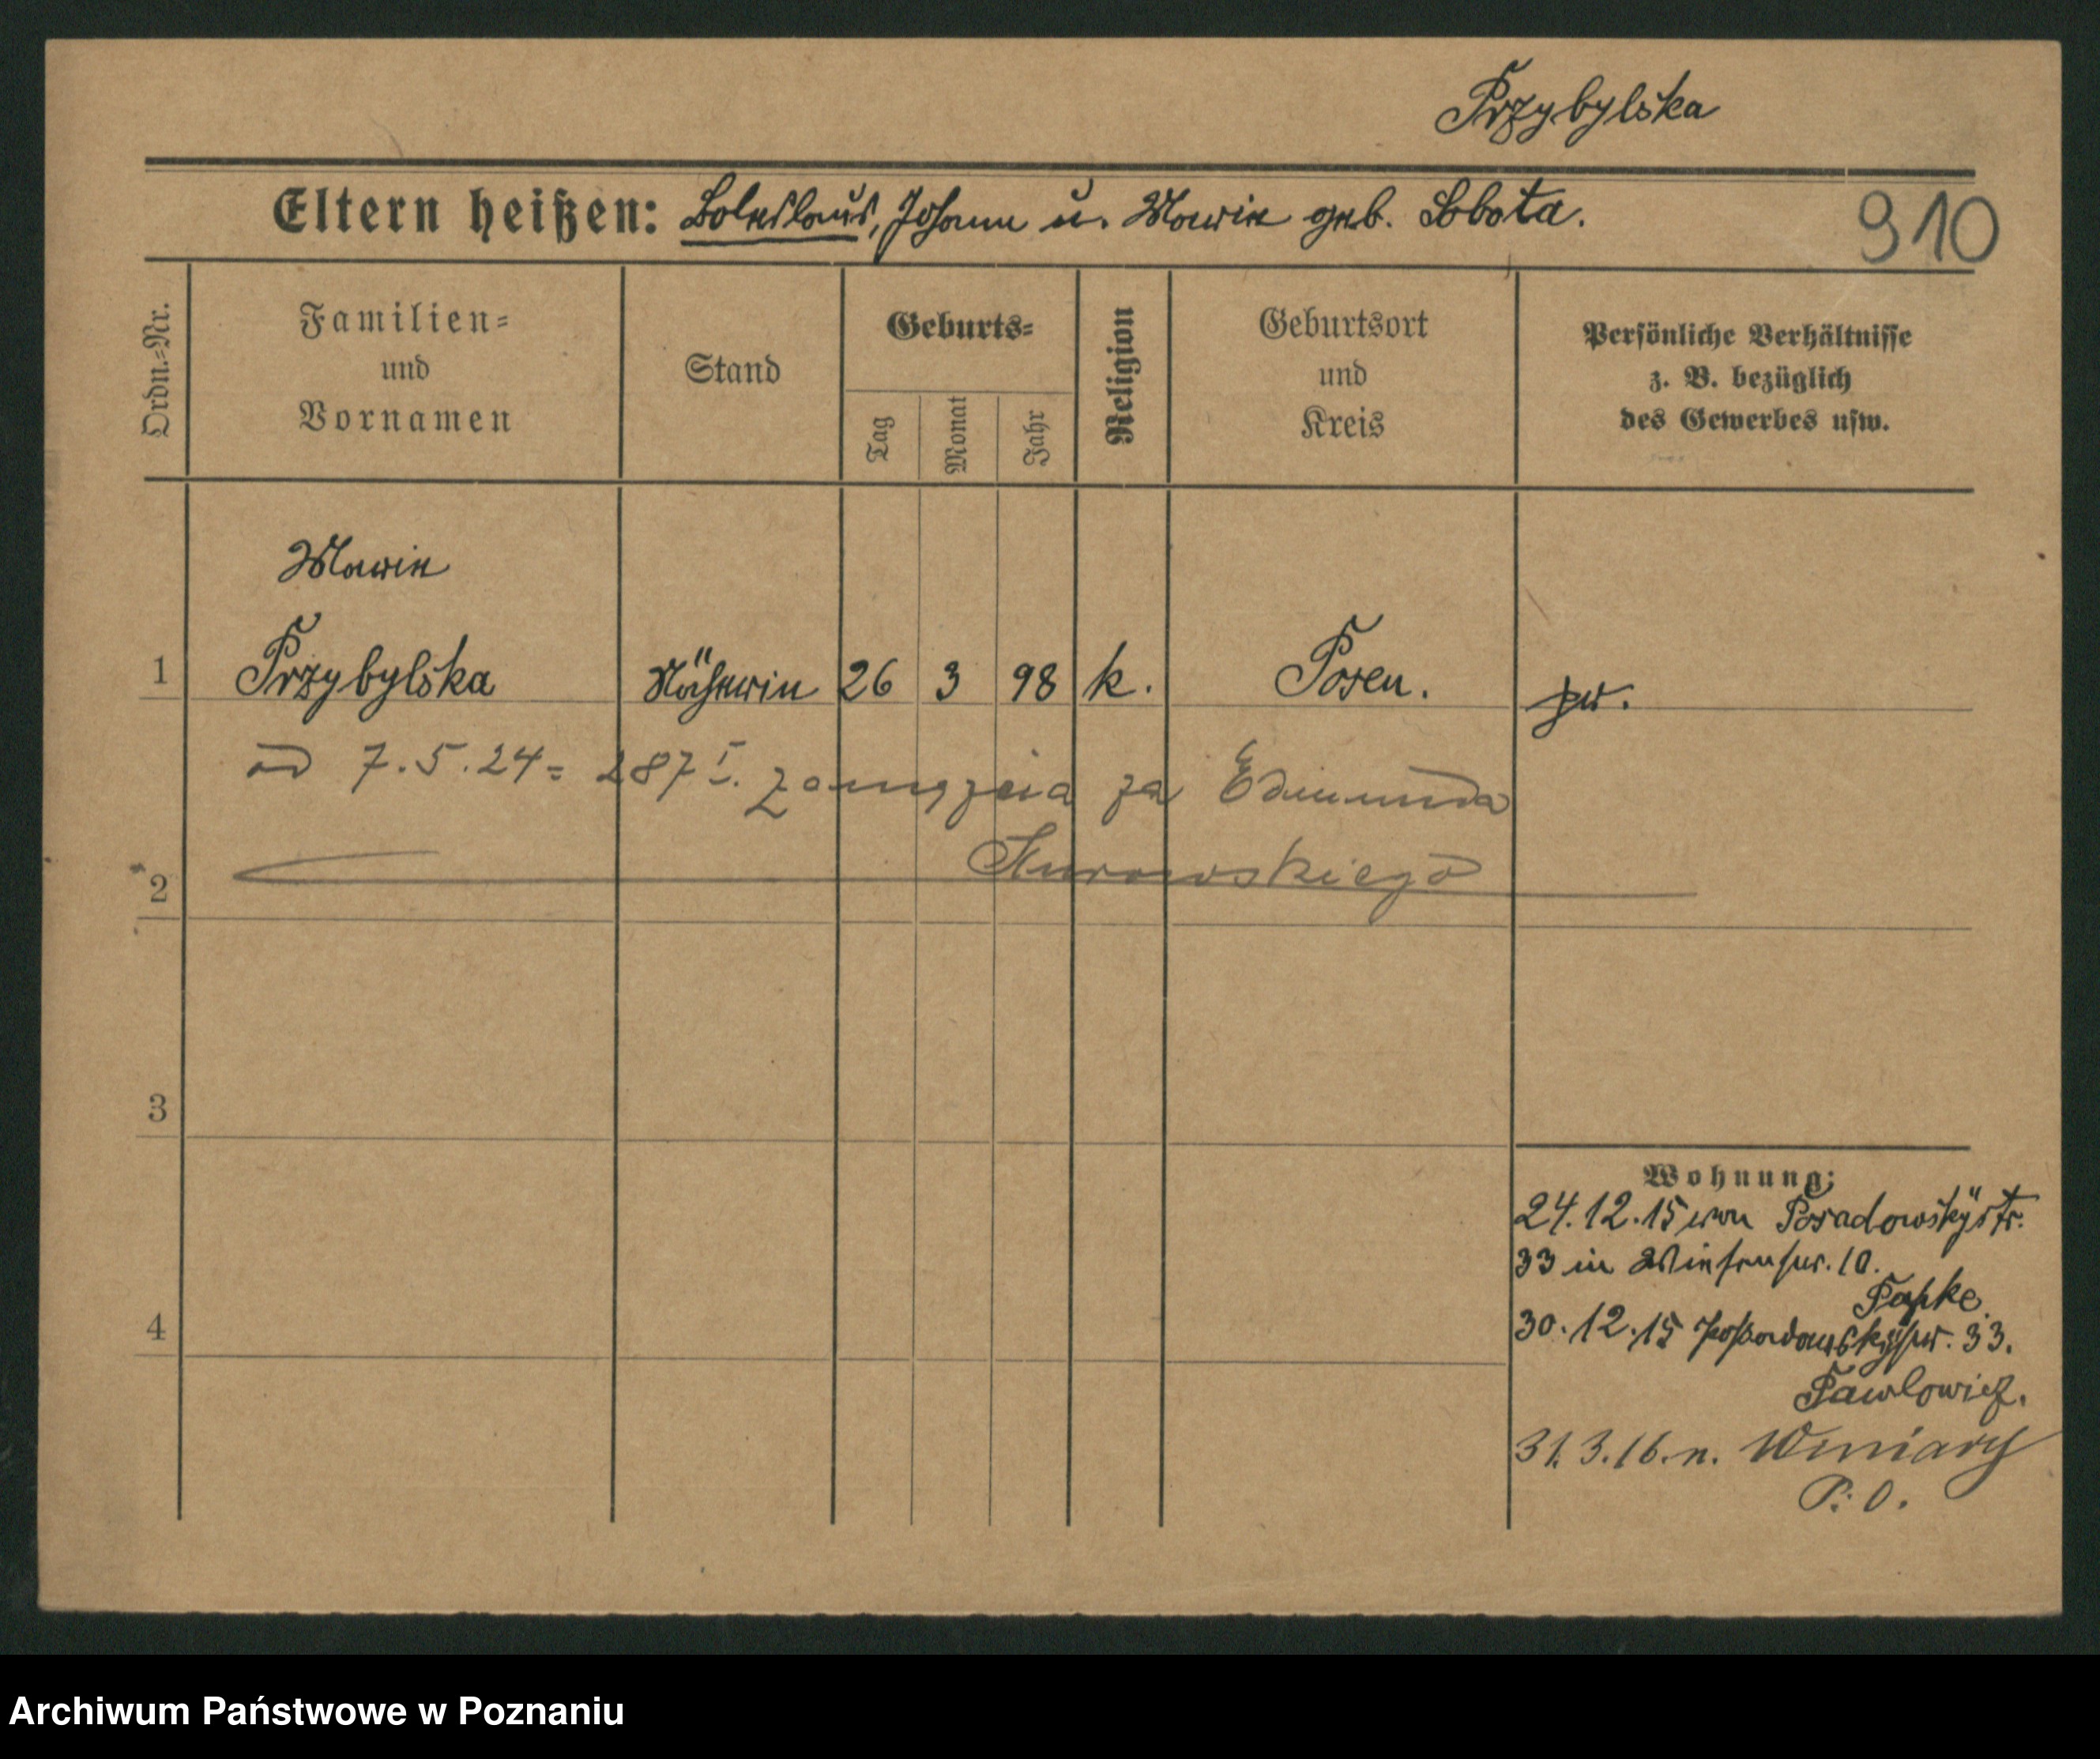 Przybylska
Eltern heißen: Boleslaus, Johann u. Marie geb. Sobota.
910
Ordn.-Nr.
Familien-
und
Vornamen
Stand
Geburts-
Tag
Monat
Jahr
Religion
Geburtsort
und
Kreis
Persönliche Verhältnisse
z. B. bezüglich
des Gewerbes usw.
Marie
1 Przybylska Näherin 26 3 98 k. Posen. pr.
od 7.5.24 = 287 I. zamężna za Edmunda
2
3
4
Wohnung:
24.12.15 von Posadowskystr.
33 in Wiesenstr. 10.
30.12.15 Posadowskystr. 33.
Pawlowicz.
31.3.16. n. Winiary
P. O.
Archiwum Państwowe w Poznaniu